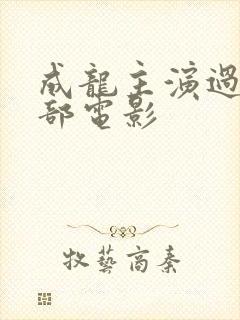 成龍主演過
部電影
牧藝商秦